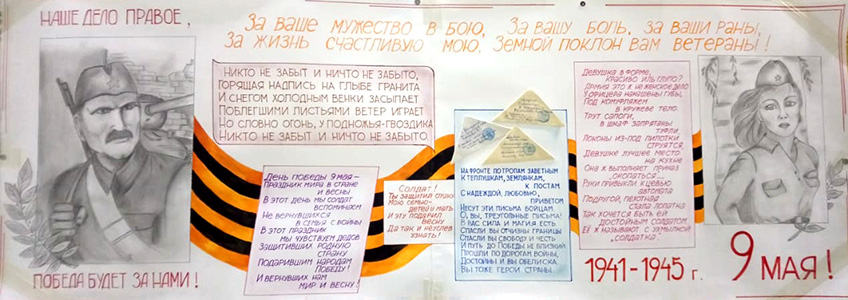 НАШЕ ДЕЛО ПРАВОЕ,
ПОБЕДА БУДЕТ ЗА НАМИ!
За ваше мужество в бою, За вашу боль, за ваши раны,
За жизнь счастливую мою, Земной поклон вам ветераны!
Никто не забыт и ничто не забыто,
Горящая надпись на глыбе гранита
И снегом холодным венки засыпает
Поблекшими листьями ветер играет
Но словно огонь, у подножья-гвоздика
Никто не забыт и ничто не забыто.
День победы 9 мая-
Праздник мира в стране
и весны
В этот день мы солдат
вспоминаем
Не вернувшихся
в семьи с войны
В этот праздник
мы чувствуем дедов
Защитивших родную
страну
Подарившим народам
Победу!
И вернувших нам
мир и весну!
Солдат!
Ты защитил
Мою семью-
детей и мать
И эту подарил
весну
Да так и не успев
узнать!
На фронте по тропам заветным
К теплушкам, землянкам,
к постам
С надеждой, любовью,
приветом
Несут эти письма бойцам.
О, вы, треугольные письма!
В вас сила и магия есть
Спасли вы отчизны границы
Спасли вы свободу и честь
И путь до Победы не близкий
Прошли по дорогам войны,
Достойны и вы обелиска
Вы тоже герои страны.
Девушка в форме,
красиво иль глупо?
Армия это ж не женское дело
У офицера накрашены губы,
Под камуфляжем
в кружеве тело.
Трут сапоги,
в шкаф запрятаны
туфли
Локоны из-под пилотки
струятся.
Девушке лучшее место
на кухне
Она ж выполняет приказ
Руки привыкли к цевью
автомата
Подругой, пехотная
стала лопатка
Так хочется быть ей
достойным солдатом
Её ж называют с ухмылкой
"солдатка".
1941-1945 г.
9 МАЯ!